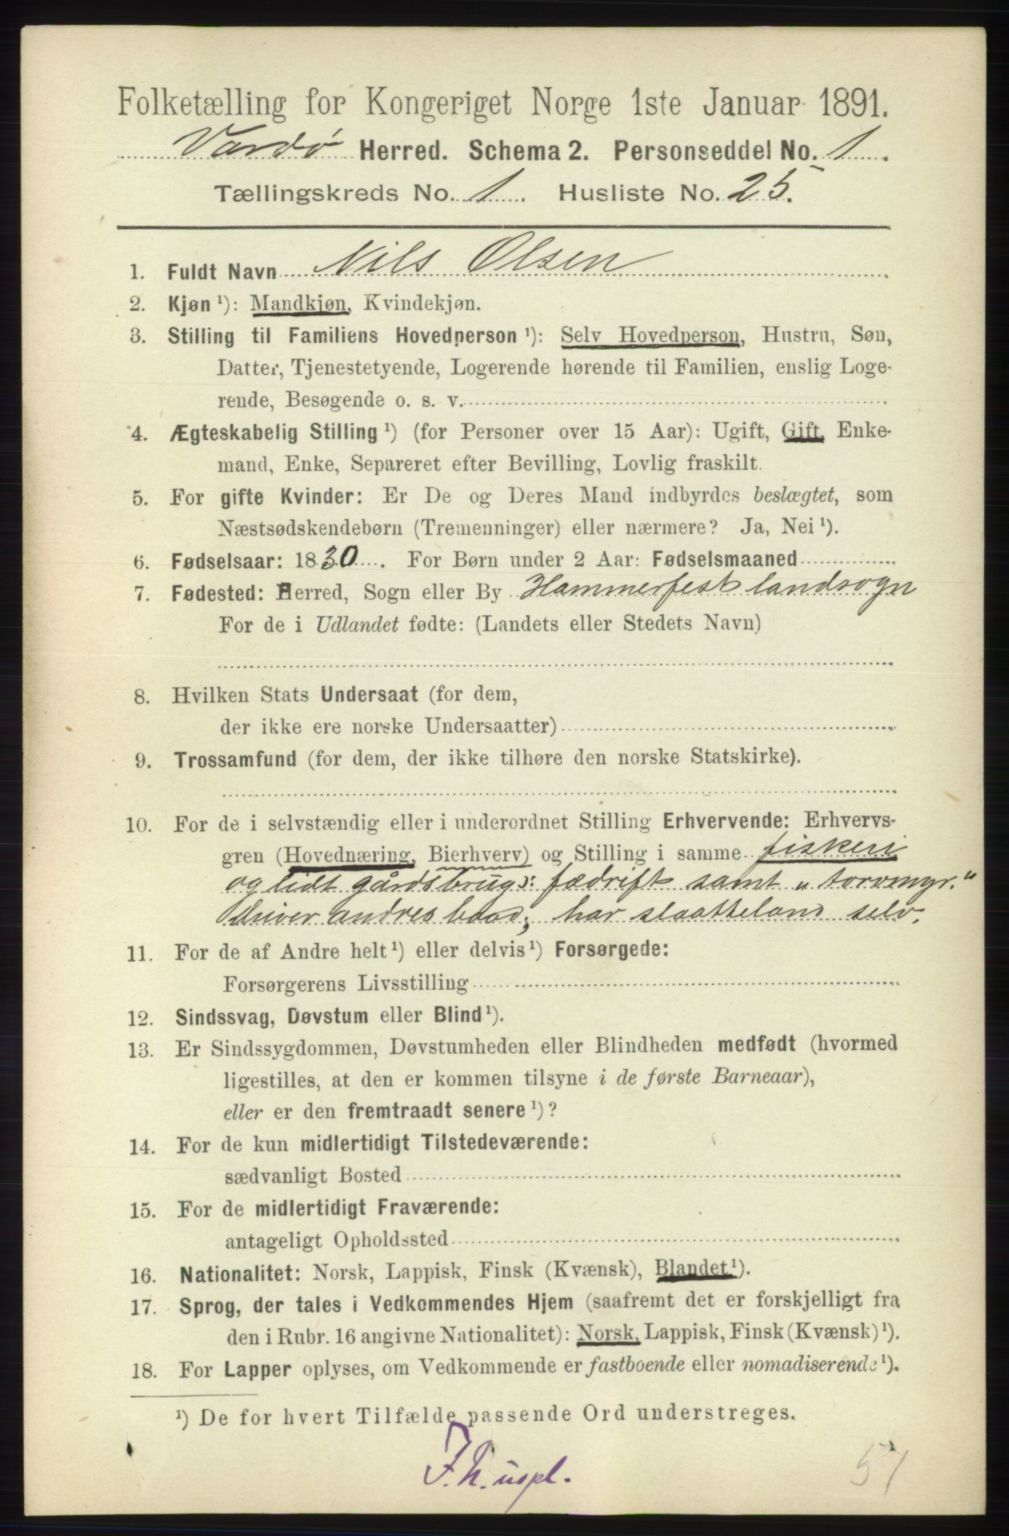 Folketælling for Kongeriget Norge 1ste Januar 1891.
Vardø Herred. Schema 2. Personseddel No. 1.
Tællingskreds No. 1. Husliste No. 25.
1. Fuldt Navn Nils Olsen
2. Kjøn ¹): Mandkjøn, Kvindekjøn.
3. Stilling til Familiens Hovedperson ¹): Selv Hovedperson, Hustru, Søn,
Datter, Tjenestetyende, Logerende hørende til Familien, enslig Loge-
rende, Besøgende o. s. v.
4. Ægteskabelig Stilling ¹) (for Personer over 15 Aar): Ugift, Gift, Enke-
mand, Enke, Separeret efter Bevilling, Lovlig fraskilt.
5. For gifte Kvinder: Er De og Deres Mand indbyrdes beslægtet, som
Næstsødskendebørn (Tremenninger) eller nærmere? Ja, Nei ¹).
6. Fødselsaar: 1830. For Børn under 2 Aar: Fødselsmaaned
7. Fødested: Herred, Sogn eller By Hammerfest landsogn
For de i Udlandet fødte: (Landets eller Stedets Navn)
8. Hvilken Stats Undersaat (for dem,
der ikke ere norske Undersaatter)
9. Trossamfund (for dem, der ikke tilhøre den norske Statskirke).
10. For de i selvstændig eller i underordnet Stilling Erhvervende: Erhvervs-
gren (Hovednæring, Bierhverv) og Stilling i samme fiskeri
og lidt gårdsbrug: fædrift samt „torvmyr.“
driver andres baad; har slaatteland selv.
11. For de af Andre helt ¹) eller delvis ¹) Forsørgede:
Forsørgerens Livsstilling
12. Sindssvag, Døvstum eller Blind ¹).
13. Er Sindssygdommen, Døvstumheden eller Blindheden medfødt (hvormed
ligestilles, at den er kommen tilsyne i de første Barneaar),
eller er den fremtraadt senere ¹)?
14. For de kun midlertidigt Tilstedeværende:
sædvanligt Bosted
15. For de midlertidigt Fraværende:
antageligt Opholdssted
16. Nationalitet: Norsk, Lappisk, Finsk (Kvænsk), Blandet ¹).
17. Sprog, der tales i Vedkommendes Hjem (saafremt det er forskjelligt fra
den i Rubr. 16 angivne Nationalitet): Norsk, Lappisk, Finsk (Kvænsk) ¹).
18. For Lapper oplyses, om Vedkommende er fastboende eller nomadiserende ¹).
¹) De for hvert Tilfælde passende Ord understreges.